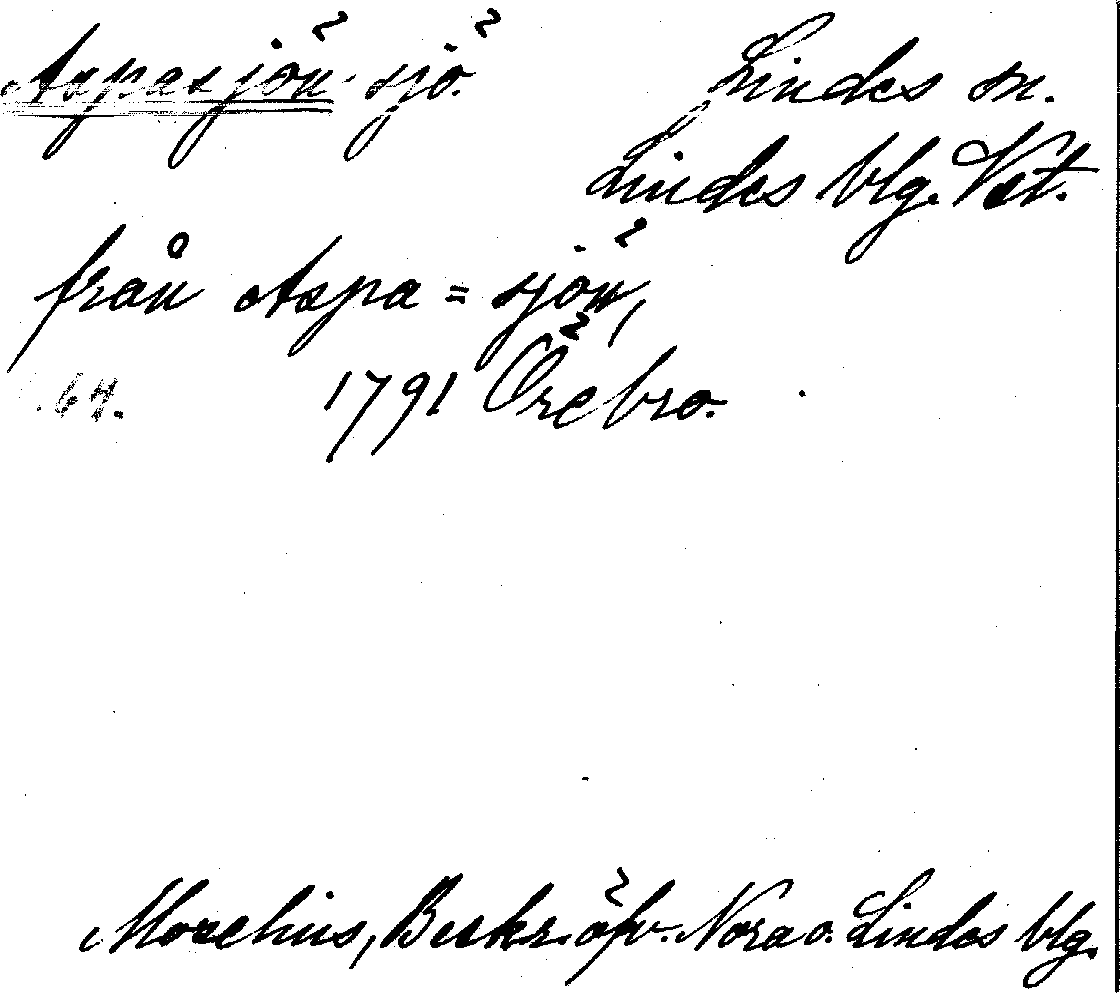 Aspasjön. sjö. Lindes sn.
Lindes blg. Vstm.
från Aspa = sjön,
s. 64. 1791 Örebro.
Morelius, Beskr. öfv. Nora o. Lindes blg.